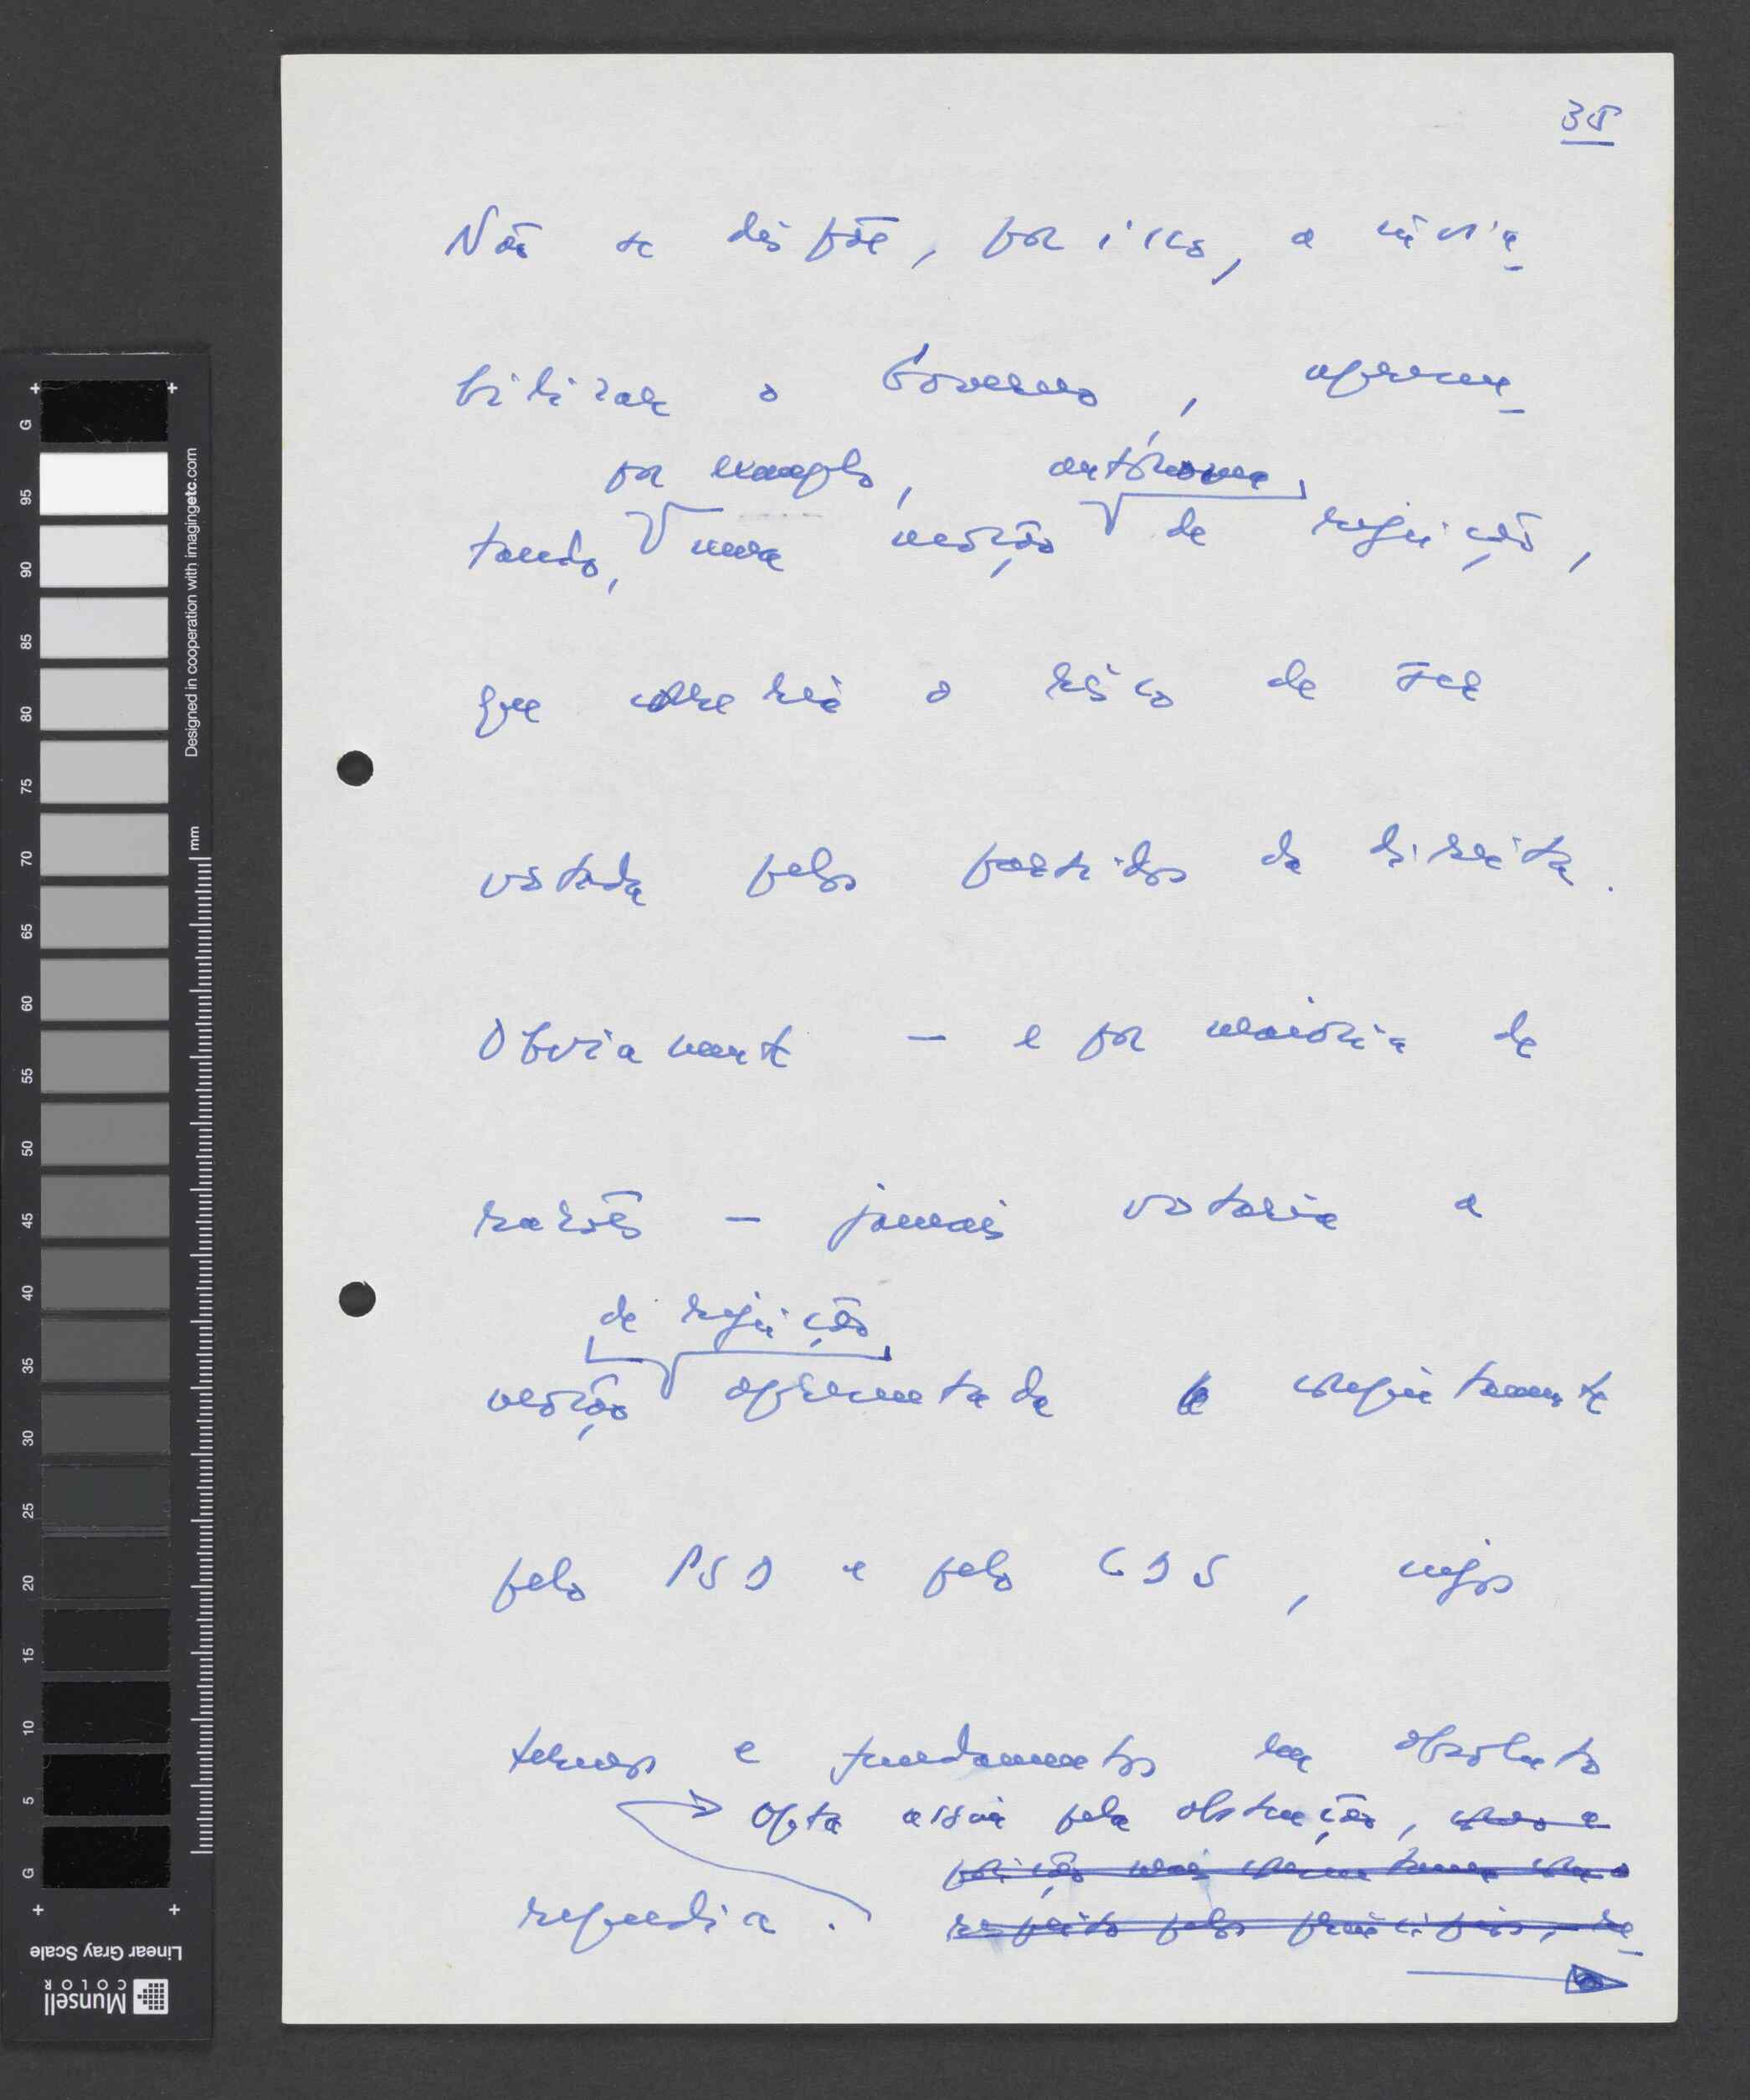 35
Não se dispõe, por isso, a invia-
bilizar o Governo, apresen-
por exemplo, autónoma,
tando, uma moção de rejeição,
que correria o risco de ser
votada pelos partidos da direita.
Obviamente – e por maioria de
razões – jamais votaria a
de rejeição
moção apresentada conjuntamente
pelo PSD e pelo CDS, cujos
termos e fundamentos em absoluto
Opta assim pela abstenção,
repudia.
respeito pelos princípios, de
G 95 90 85 80 75 70 65 60 55 50 45 40 35 30 25 20 15 10 5 G
Designed in cooperation with imagingetc.com
mm
Linear Gray Scale
Munsell
COLOR